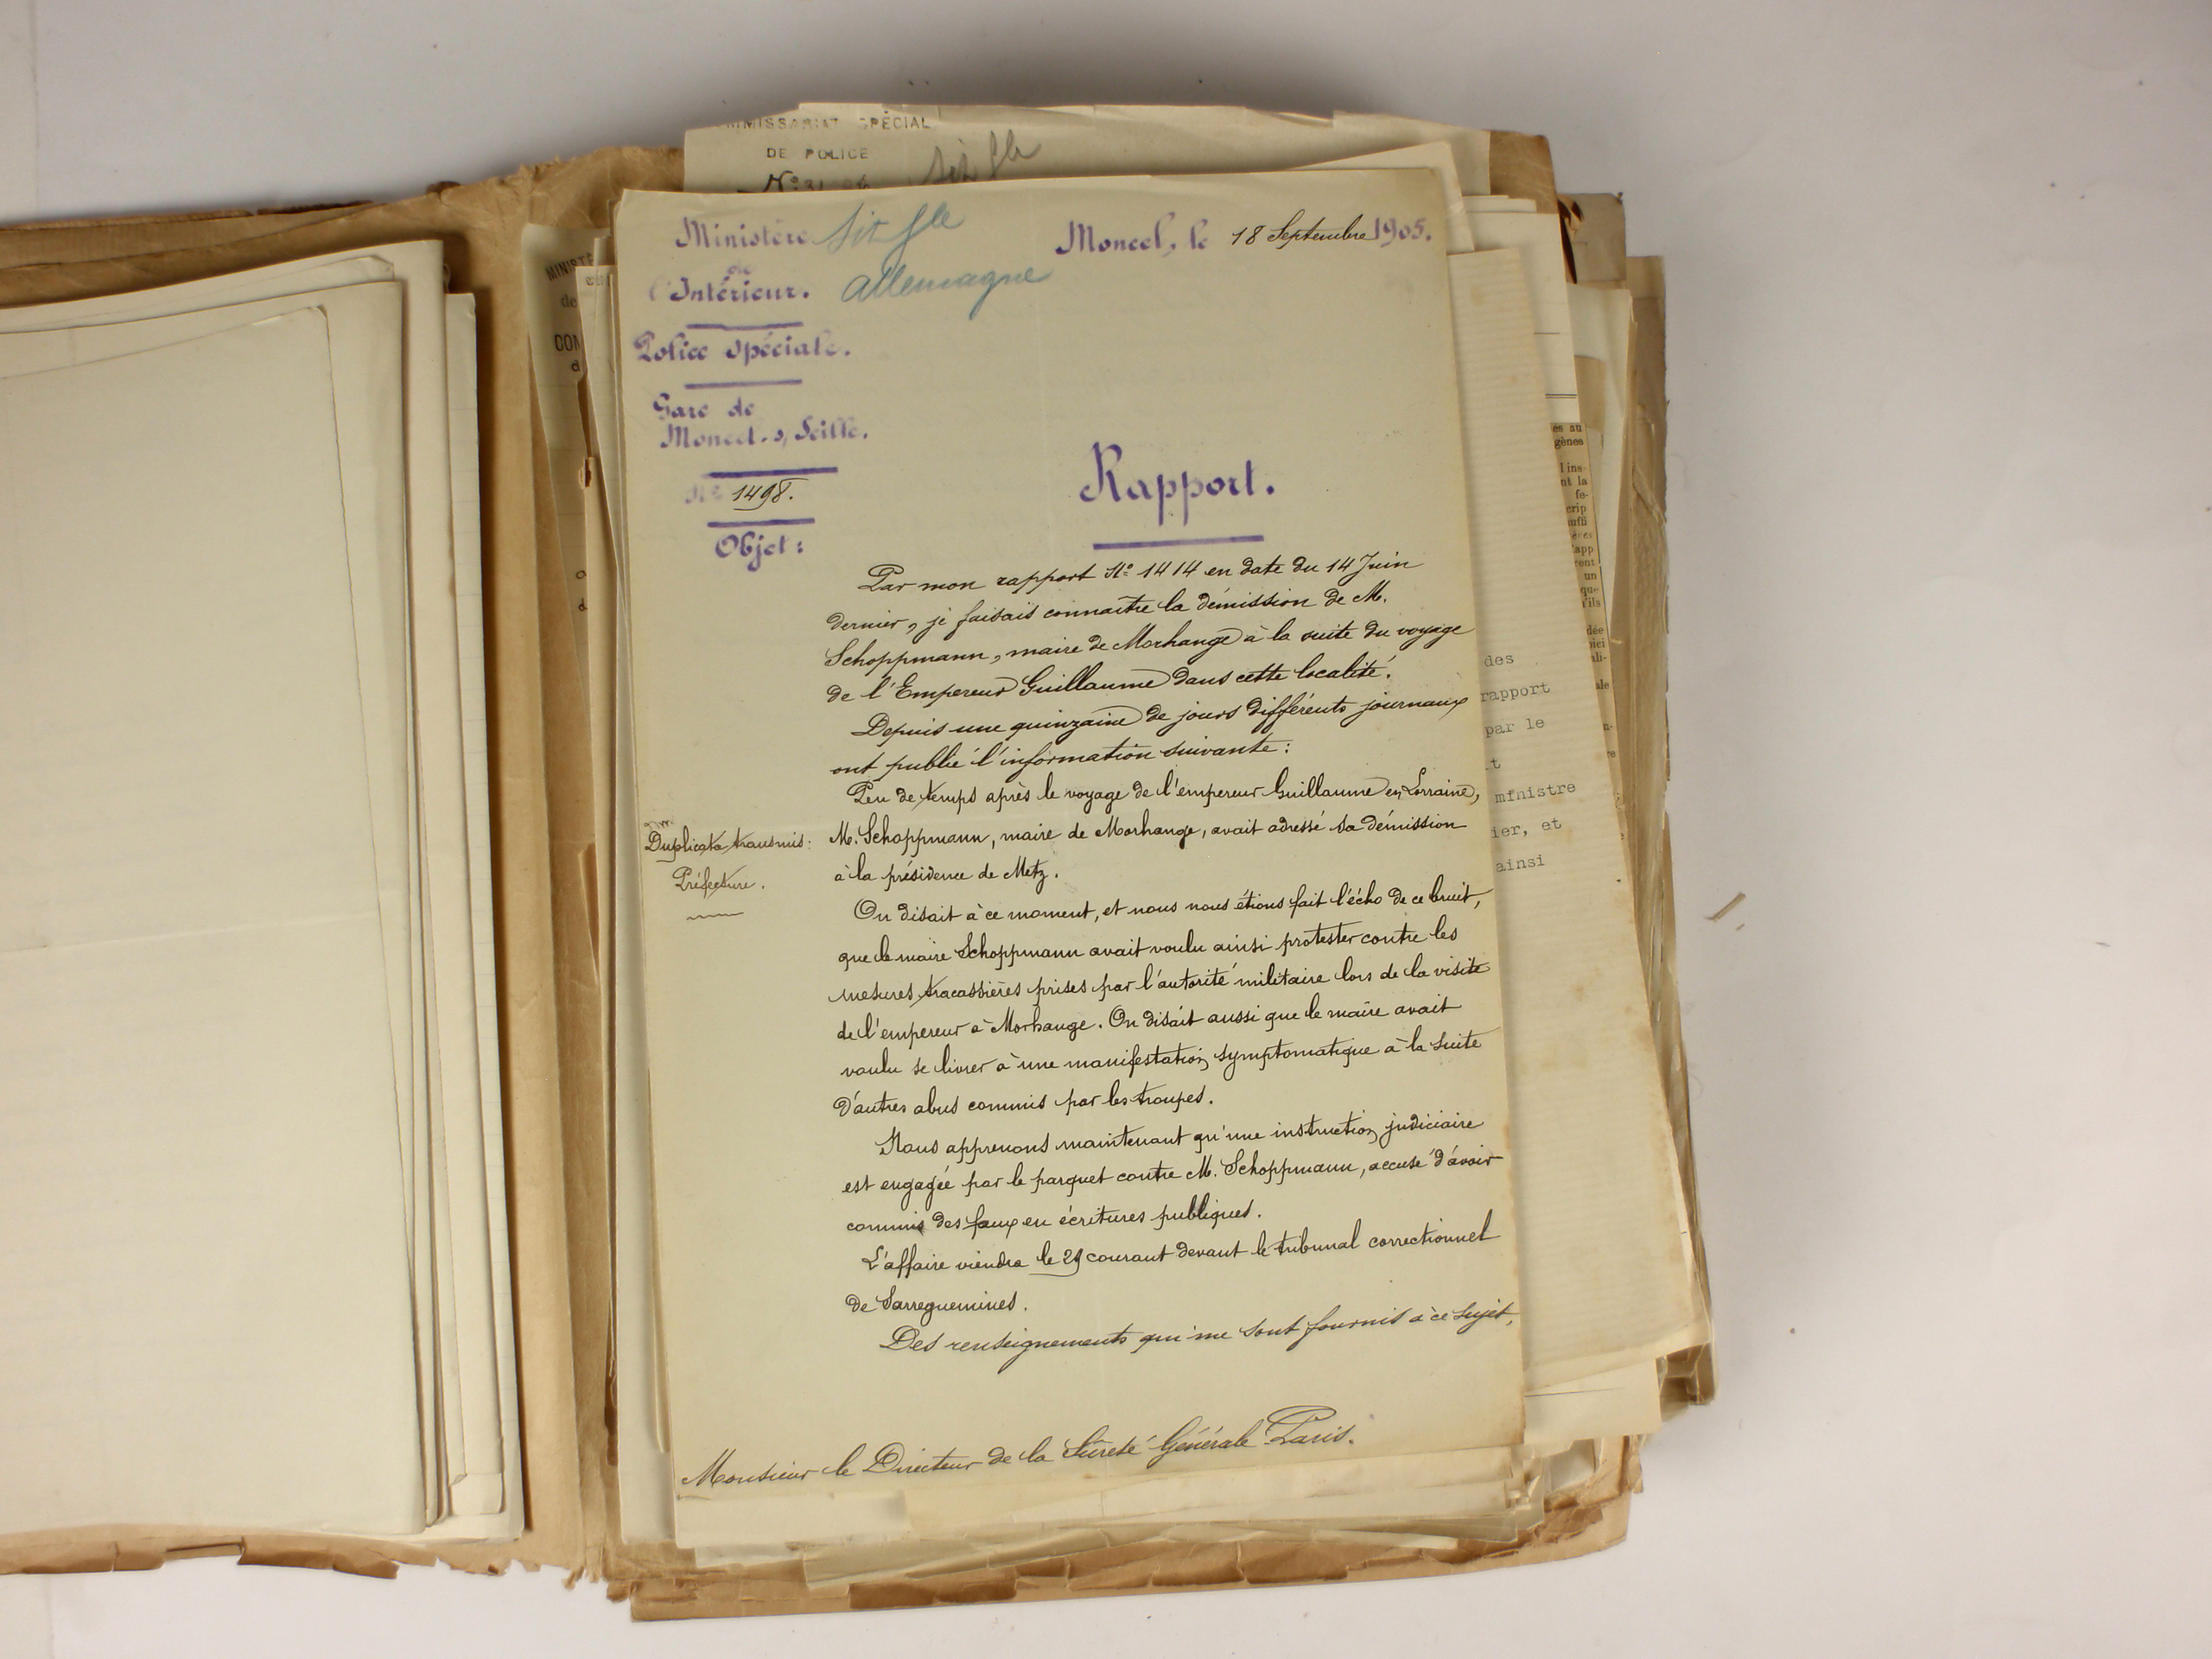 SPÉCIAL
DE POLICE
Sit gle
Ministère Sit gle
de
l'Intérieur. Allemagne
Moncel, le 18 Septembre 1905.
Police spéciale.
Gare de
Moncel-s/Seille.
N° 1498.
Objet:
Rapport.
Par mon rapport N° 1414 en date du 14 Juin
dernier, je faisais connaître la démission de M.
Schoppmann, maire de Morhange à la suite du voyage
de l'Empereur Guillaume dans cette localité.
Depuis une quinzaine de jours différents journaux
ont publié l'information suivante:
Peu de temps après le voyage de l'empereur Guillaume en Lorraine,
M. Schoppmann, maire de Morhange, avait adressé sa démission
à la présidence de Metz.
On disait à ce moment, et nous nous étions fait l'écho de ce bruit,
que le maire Schoppmann avait voulu ainsi protester contre les
mesures tracassières prises par l'autorité militaire lors de la visite
de l'empereur à Morhange. On disait aussi que le maire avait
voulu se livrer à une manifestation symptomatique à la suite
d'autres abus commis par les troupes.
Nous apprenons maintenant qu'une instruction judiciaire
est engagée par le parquet contre M. Schoppmann, accusé d'avoir
commis des faux en écritures publiques.
L'affaire viendra le 29 courant devant le tribunal correctionnel
de Sarreguemines.
Des renseignements qui me sont fournis à ce sujet,
Monsieur le Directeur de la Sûreté Générale Paris.
Duplicata transmis:
Préfecture.
des
rapport
par le
ministre
et
ainsi